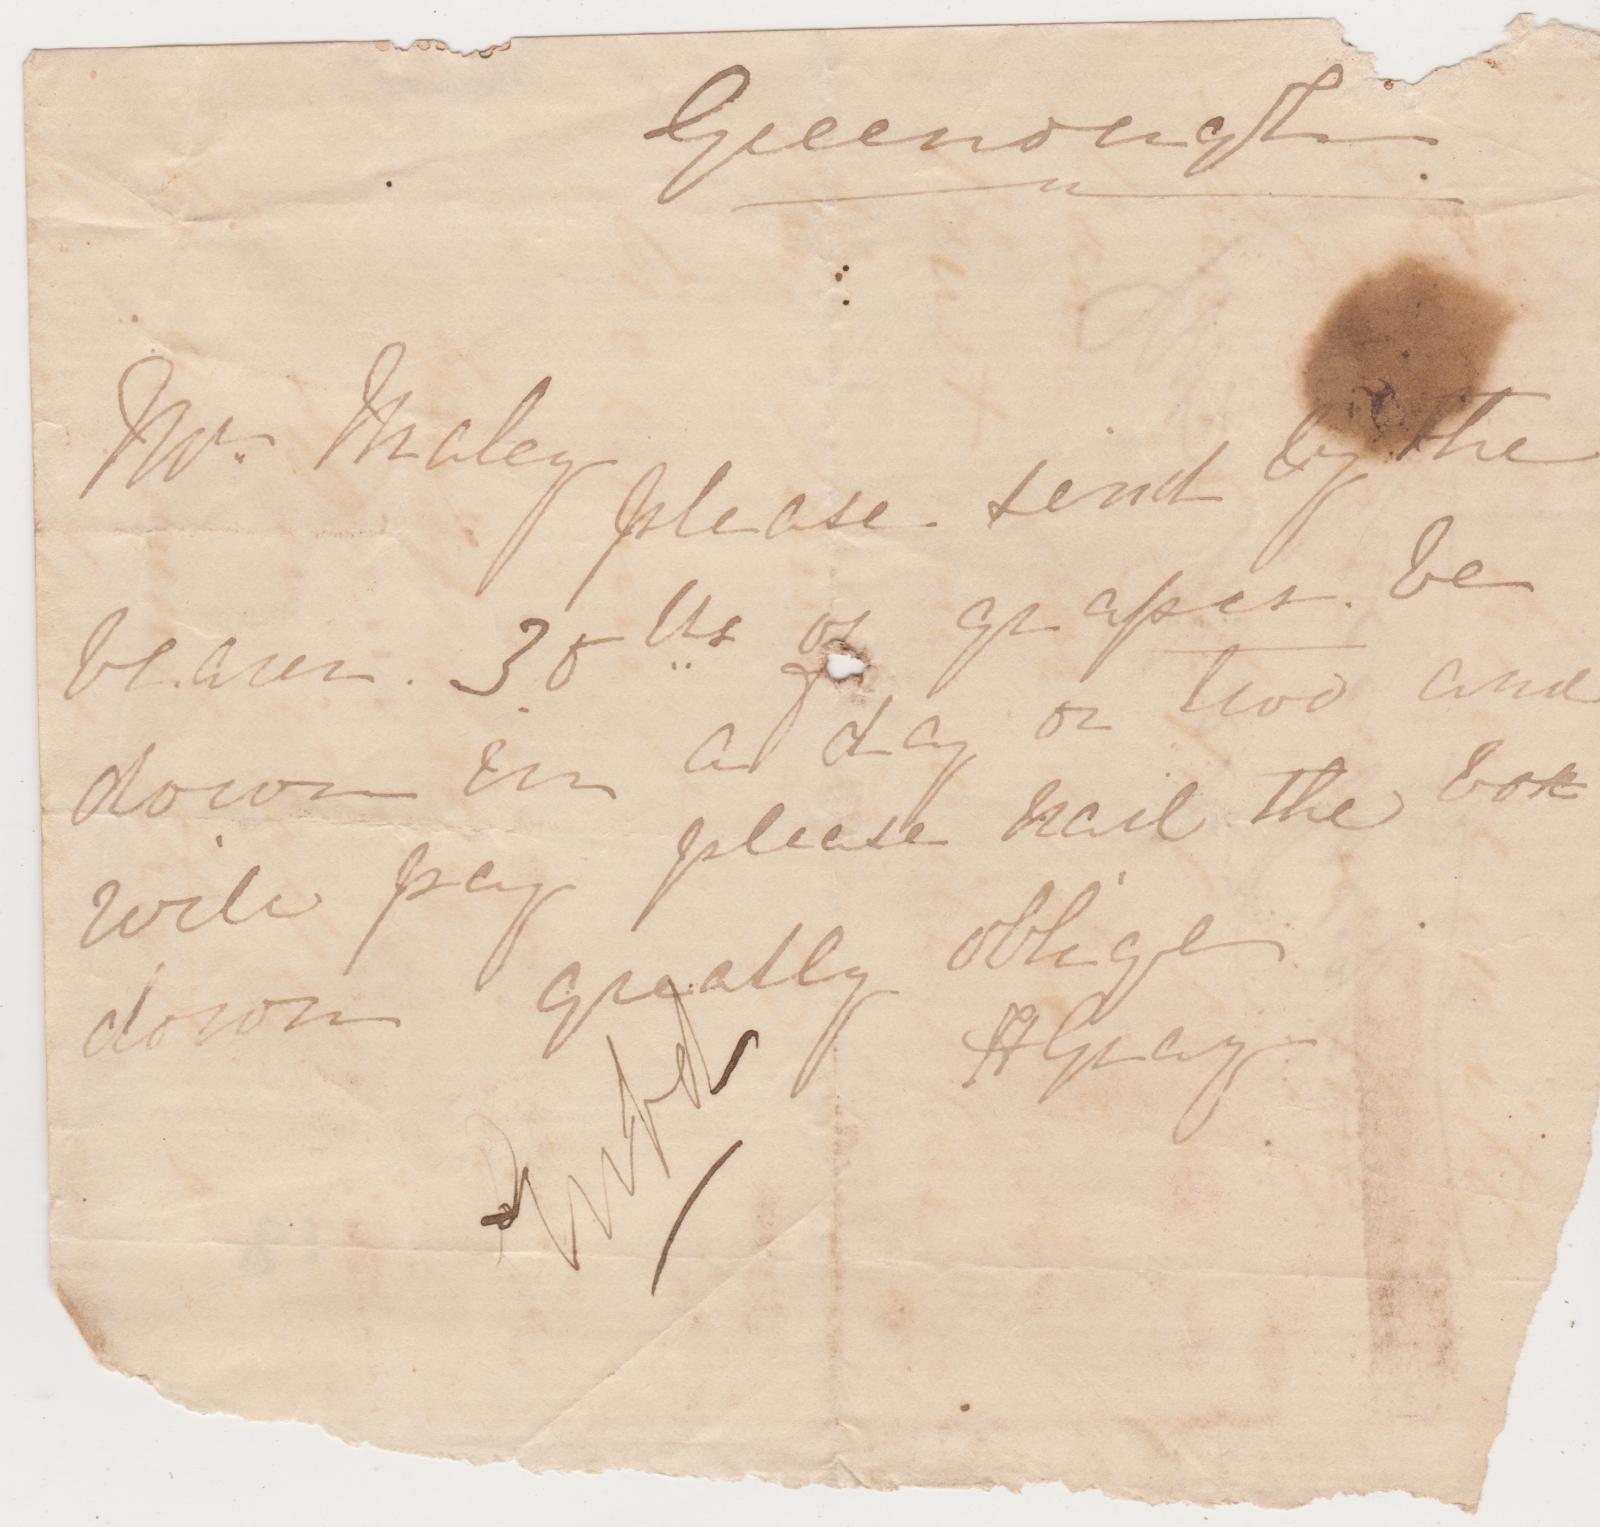 Greenough
Mr. Maley
please send by the
bearer. 30 lbs of grapes. be
down in a day or two and
will pay please nail the box
down greatly oblige
H Gray